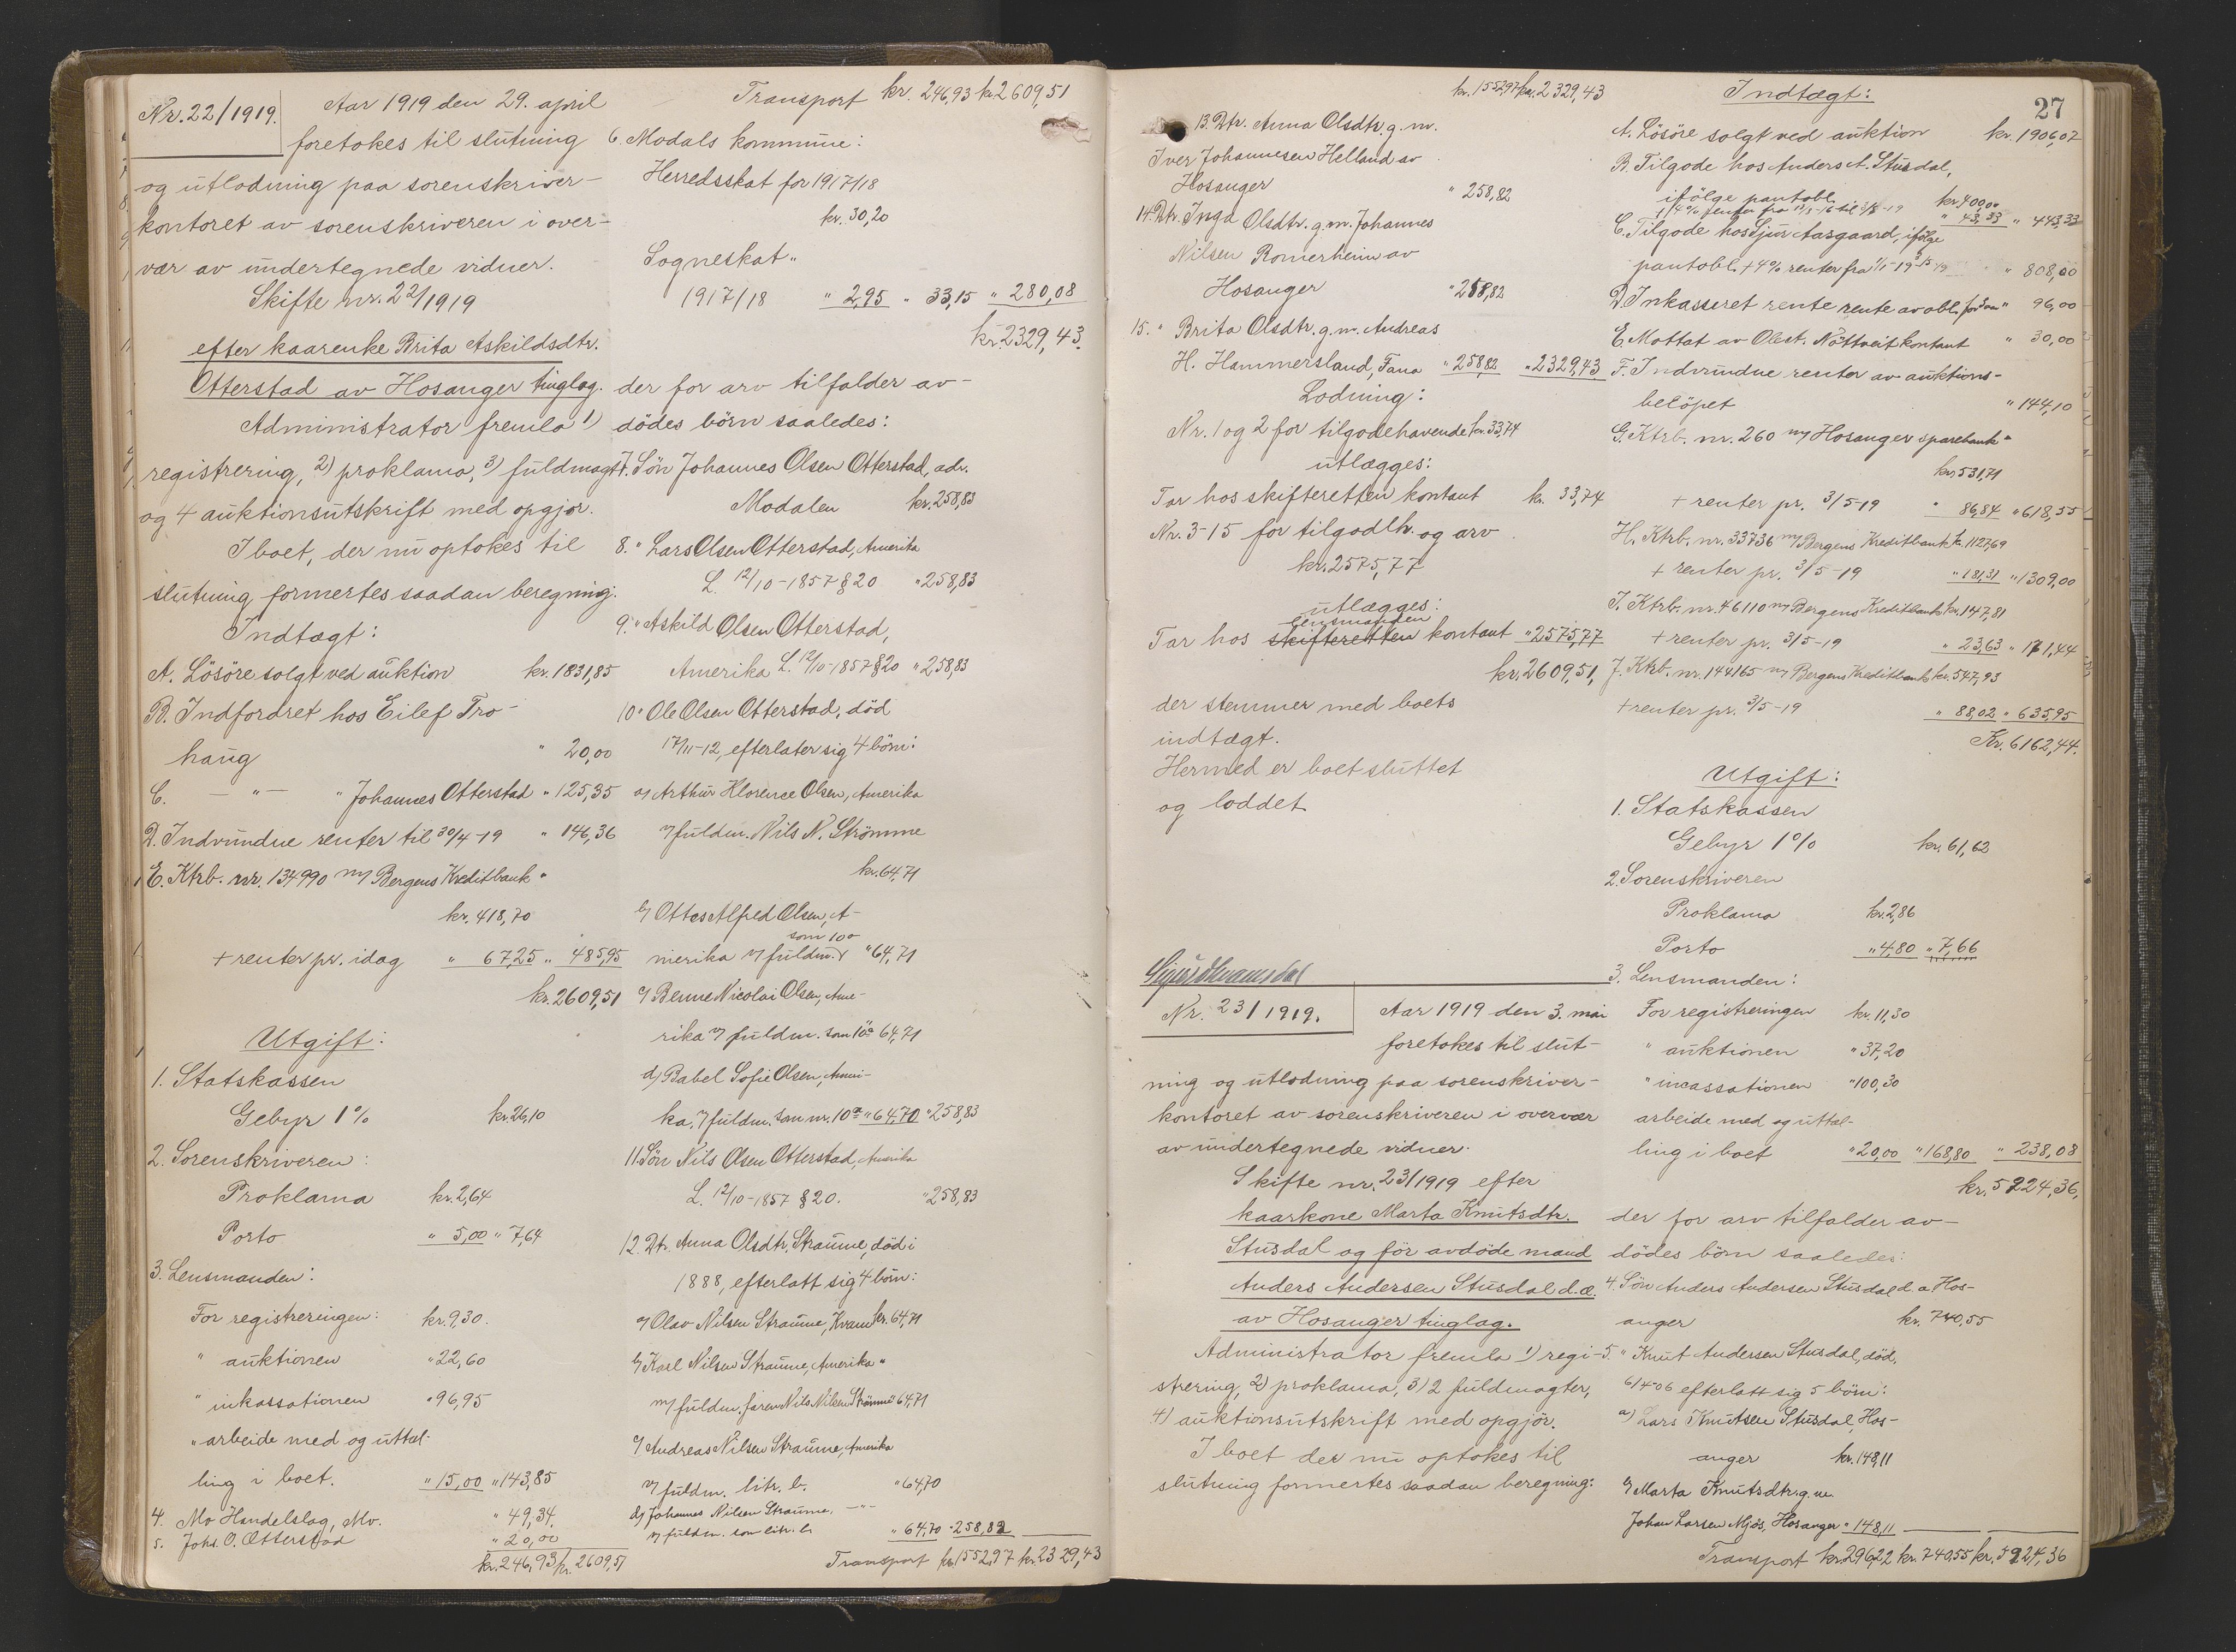 Nr. 22/1919.
Aar 1919 den 29. april
foretokes til slutning
og utlodning paa sorenskriver-
kontoret av sorenskriveren i over-
vær av undertegnede vidner.
Skifte nr. 22/1919
efter kaarenke Brita Askildsdtr.
Otterstad av Hosanger tinglag.
Administrator fremla 1)
registrering, 2) proklama, 3) fuldmagt
og 4 auktionsutskrift med opgjør.
I boet, der nu optokes til
slutning formertes saadan beregning.
Indtægt:
A. Lösöre solgt ved auktion kr. 1831,85
B. Indfordret hos Eilef Tro-
haug " 20,00
C. — " — " Johannes Otterstad " 125,35
D. Indvundne renter til 30/4-19 " 146,36
E. Ktrb. nr. 134990 m/ Bergens Kreditbank "
kr. 418,70
+ renter pr. idag " 67,25 " 485,95
kr. 2609,51
Utgift:
1. Statskassen
Gebyr 1% kr. 26,10
2. Sorenskriveren:
Proklama kr. 2,64
Porto " 5,00 " 7,64
3. Lensmanden:
For registreringen: kr. 9,30.
" auktionen " 22,60
" inkassationen " 96,95
" arbeide med og uttæl-
ling i boet. " 15,00 " 143,85
4. Mo Handelslag, Mo. " 49,34
5. Johs. O. Otterstad " 20,00
kr. 246,93 kr. 2609,51
Transport kr. 246,93 kr. 2609,51
6. Modals kommune:
Herredsskat for 1917/18
kr. 30,20
Sogneskat "
1917/18 " 2,95 " 33,15 " 280,08
kr. 2329,43.
der for arv tilfalder av-
dödes börn saaledes:
7. Sön Johannes Olsen Otterstad, adr.
Modalen kr. 258,83
8. " Lars Olsen Otterstad, Amerika
L. 12/10-1857 § 20 " 258,83
9. " Askild Olsen Otterstad,
Amerika L. 12/10-1857 § 20 " 258,83
10 " Ole Olsen Otterstad, död
17/11-12, efterlater sig 4 börn:
a) Arthur Klorence Olsen, Amerika
v/ fuldm. Nils N. Strömme
kr. 64,71
b) Ottes Alfred Olsen, A-
merika v/ fuldm. som 10a " 64,71
c) Benne Nicolai Olsen, Ame-
rika v/ fuldm. som 10a " 64,71
d) Babel Sofie Olsen, Ameri-
ka, v/ fuldm. som nr. 10a " 64,70 " 258,83
11. Sön Nils Olsen Otterstad, Amerika
L. 12/10-1857 § 20. " 258,83
12. Dtr. Anna Olsdtr. Straume, död i
1888, efterlatt sig 4 börn:
a) Olav Nilsen Straume, Kvam kr. 64,71
b) Karl Nilsen Straume, Amerika "
m/ fuldm. faren Nils Nilsen Strömme 64,71
c) Andreas Nilsen Straume, Amerika
v/ fuldm. litr. b. " 64,70
d) Johannes Nilsen Straume, — " —
v/ fuldm. som litr. b " 64,70 " 258,82
Transport kr. 1552,97 kr. 2329,43
kr. 1552,97 kr. 2329,43
13. Dtr. Anna Olsdtr. g. m.
Iver Johannesen Helland av
Hosanger " 258,82
14. Dtr. Inga Olsdtr. g. m. Johannes
Nilsen Romerheim av
Hosanger " 258,82
15. " Brita Olsdtr. g. m. Andreas
H. Hammersland, Fana " 258,82 " 2329,43
Lodning:
Nr. 1 og 2 for tilgodehavende kr. 33,74
utlægges:
Tar hos skifteretten kontant kr. 33,74
Nr. 3-15 for tilgodeh. og arv
kr. 2575,77
utlægges:
lensmanden
Tar hos skifteretten kontant " 2575,77
kr. 2609,51,
der stemmer med boets
indtægt.
Hermed er boet sluttet
og loddet
Nr. 23/1919.
Aar 1919 den 3. mai
foretokes til slut-
ning og utlodning paa sorenskriver-
kontoret av sorenskriveren i overvær
av undertegnede vidner.
Skifte nr. 23/1919 efter
kaarkone Marta Knutsdtr.
Stusdal og för avdöde mand
Anders Andersen Stusdal d. æ.
av Hosanger tinglag.
Administrator fremla 1) regi-
strering, 2) proklama, 3) 2 fuldmagter,
4) auktionsutskrift med opgjör.
I boet der nu optokes til
slutning formertes saadan beregning:
27
Indtægt:
A. Lösöre solgt ved auktion kr. 1906,07
B. Tilgode hos Anders A. Stusdal,
ifölge pantobl. kr. 400,00
+ 4% renter fra " 43,33 " 443,33
C. Tilgode hos Sjur Aasgaard, ifölge
pantobl. + 4% renter fra " 808,00
D. Inkasseret rente rente av obl. " 96,00
E. Mottat av Olest. Nöttveit kontant " 30,00
F. Indvundne renter av auktions-
belöpet " 144,10
G. Ktrb. nr. 260 m/ Hosanger sparebank "
kr. 531,71
+ renter pr. 3/5-19 " 86,84 " 618,55
H. Ktrb. nr. 33736 m/ Bergens Kreditbank kr. 1127,69
+ renter pr. 3/5-19 " 181,31 " 1309,00
I. Ktrb. nr. 46110 m/ Bergens Kreditbank kr. 147,81
+ renter pr. 3/5-19 " 23,63 " 171,44
J. Ktrb. nr. 144165 m/ Bergens Kreditbank kr. 547,93
+ renter pr. 3/5-19 " 88,02 " 635,95
Kr. 6162,44.
Utgift:
1. Statskassen
Gebyr 1% kr. 61,62
2. Sorenskriveren
Proklama kr. 2,86
Porto " 4,80 " 7,66
3. Lensmanden:
For registreringen kr. 11,30
" auktionen " 37,20
" incassationen " 100,30
arbeide med og uttæl-
ling i boet " 20,00 " 168,80 " 238,08
kr. 5924,36,
der for arv tilfalder av-
dödes börn saaledes:
4. Sön Anders Andersen Stusdal d. a Hos-
anger kr. 740,55
5. " Knut Andersen Stusdal, död,
6/4-06 efterlatt sig 5 börn:
a) Lars Knutsen Stusdal, Hos-
anger kr. 148,11
b) Marta Knutsdtr. g. m.
Johan Larsen Mjös, Hosanger " 148,11
Transport kr. 296,22 kr. 740,55 kr. 5924,36